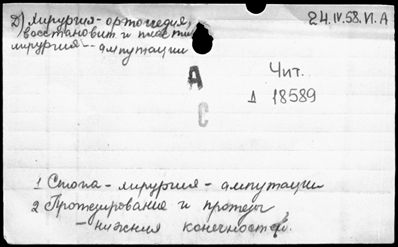 24.IV.58.И.А
Д) Хирургия - ортопедия,
восстановит и пласти
хирургия - ампутации
А
С
Чит.
Д 18589
1 Стопа - хирургия - ампутации
2 Протезирование и протезы
- нижния конечностей.